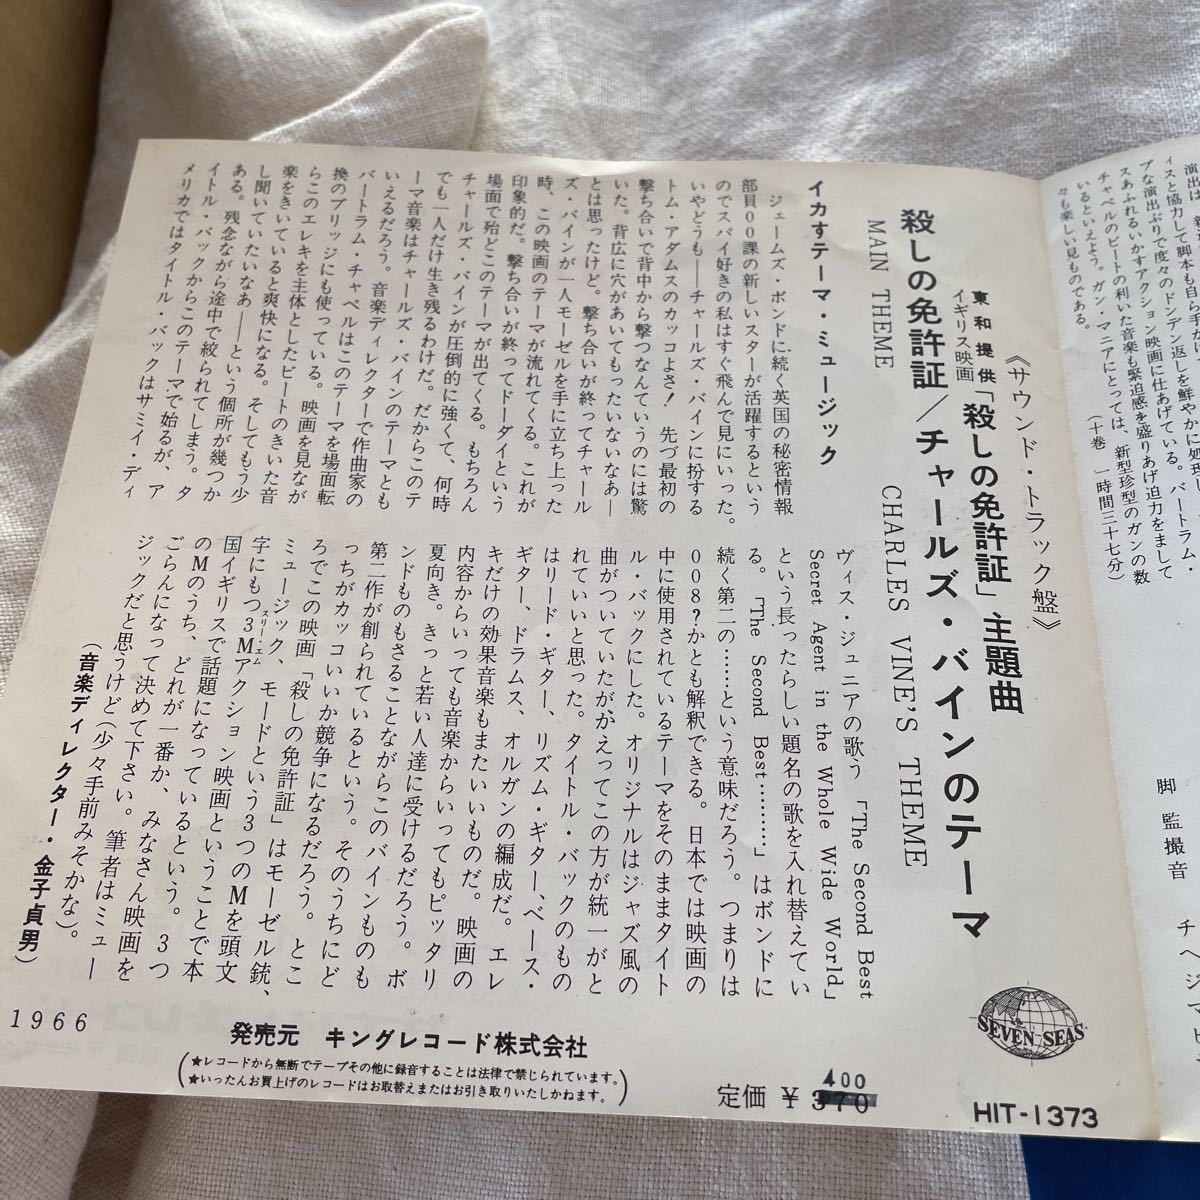 演出は
ィスと協力して脚本も自ら手がけ
プな演出ぶりで度々のドンデン返しを鮮やかに処理し
スあふれるいかすアクション映画に仕あげている。バートラム・
チャペルのビートの利いた音楽も緊迫感を盛りあげ迫力をまして
いるといえよう。ガン・マニアにとっては、新型珍型のガンの数
々も楽しい見ものである。
（十巻 一時間三十七分）
脚
監
撮
音
《サウンド・トラック盤》
東和提供
イギリス映画
「殺しの免許証」主題曲
殺しの免許証／チャールズ・バインのテーマ
MAIN THEME
CHARLES VINE'S THEME
イカすテーマ・ミュージック
ジェームズ・ボンドに続く英国の秘密情報
部員00課の新しいスターが活躍するという
のでスパイ好きの私はすぐ飛んで見にいった。
いやどうも――チャールズ・バインに扮する
トム・アダムスのカッコよさ！ 先づ最初の
撃ち合いで背中から撃つなんていうのには驚
いた。背広に穴があいてもったいないなあ―
とは思ったけど。撃ち合いが終ってチャール
ズ・バインが一人モーゼルを手に立ち上った
時、この映画のテーマが流れてくる。これが
印象的だ。撃ち合いが終ってドーダイという
場面で殆どこのテーマが出てくる。もちろん
チャールズ・バインが圧倒的に強くて、何時
でも一人だけ生き残るわけだ。だからこのテ
ーマ音楽はチャールズ・バインのテーマとも
いえるだろう。音楽ディレクターで作曲家の
バートラム・チャペルはこのテーマを場面転
換のブリッジにも使っている。映画を見なが
らこのエレキを主体としたビートのきいた音
楽をきいていると爽快になる。そしてもう少
し聞いていたいなあ――という個所が幾つか
ある。残念ながら途中で絞られてしまう。タ
イトル・バックからこのテーマで始るが、ア
メリカではタイトル・バックはサミイ・ディ
ヴィス・ジュニアの歌う「The Second Best
Secret Agent in the Whole Wide World」
という長ったらしい題名の歌を入れ替えてい
る。「The Second Best………」はボンドに
続く第二の……という意味だろう。つまりは
008？かとも解釈できる。日本では映画の
中に使用されているテーマをそのままタイト
ル・バックにした。オリジナルはジャズ風の
曲がついていたがかえってこの方が統一がと
れていいと思った。タイトル・バックのもの
はリード・ギター、リズム・ギター、ベース・
ギター、ドラムス、オルガンの編成だ。エレ
キだけの効果音楽もまたいいものだ。映画の
内容からいっても音楽からいってもピッタリ
夏向き。きっと若い人達に受けるだろう。ボ
ンドものもさることながらこのバインものも
第二作が創られているという。そのうちにど
っちがカッコいいか競争になるだろう。とこ
ろでこの映画「殺しの免許証」はモーゼル銃、
ミュージック、モードという3つのMを頭文
字にもつ3Mアクション映画ということで本
スリー・エム
国イギリスで話題になっているという。3つ
のMのうち、どれが一番か、みなさん映画を
ごらんになって決めて下さい。筆者はミュー
ジックだと思うけど（少々手前みそかな）。
（音楽ディレクター・金子貞男）
SEVEN SEAS
1966
発売元 キングレコード株式会社
★レコードから無断でテープその他に録音することは法律で禁じられています。
★いったんお買上げのレコードはお取替えまたはお引き取りいたしかねます。
400
定価 ¥370
HIT-1373